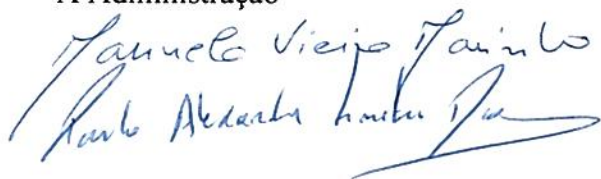 A Administração
Manuela Vieira Marinho
Paulo Alexandre